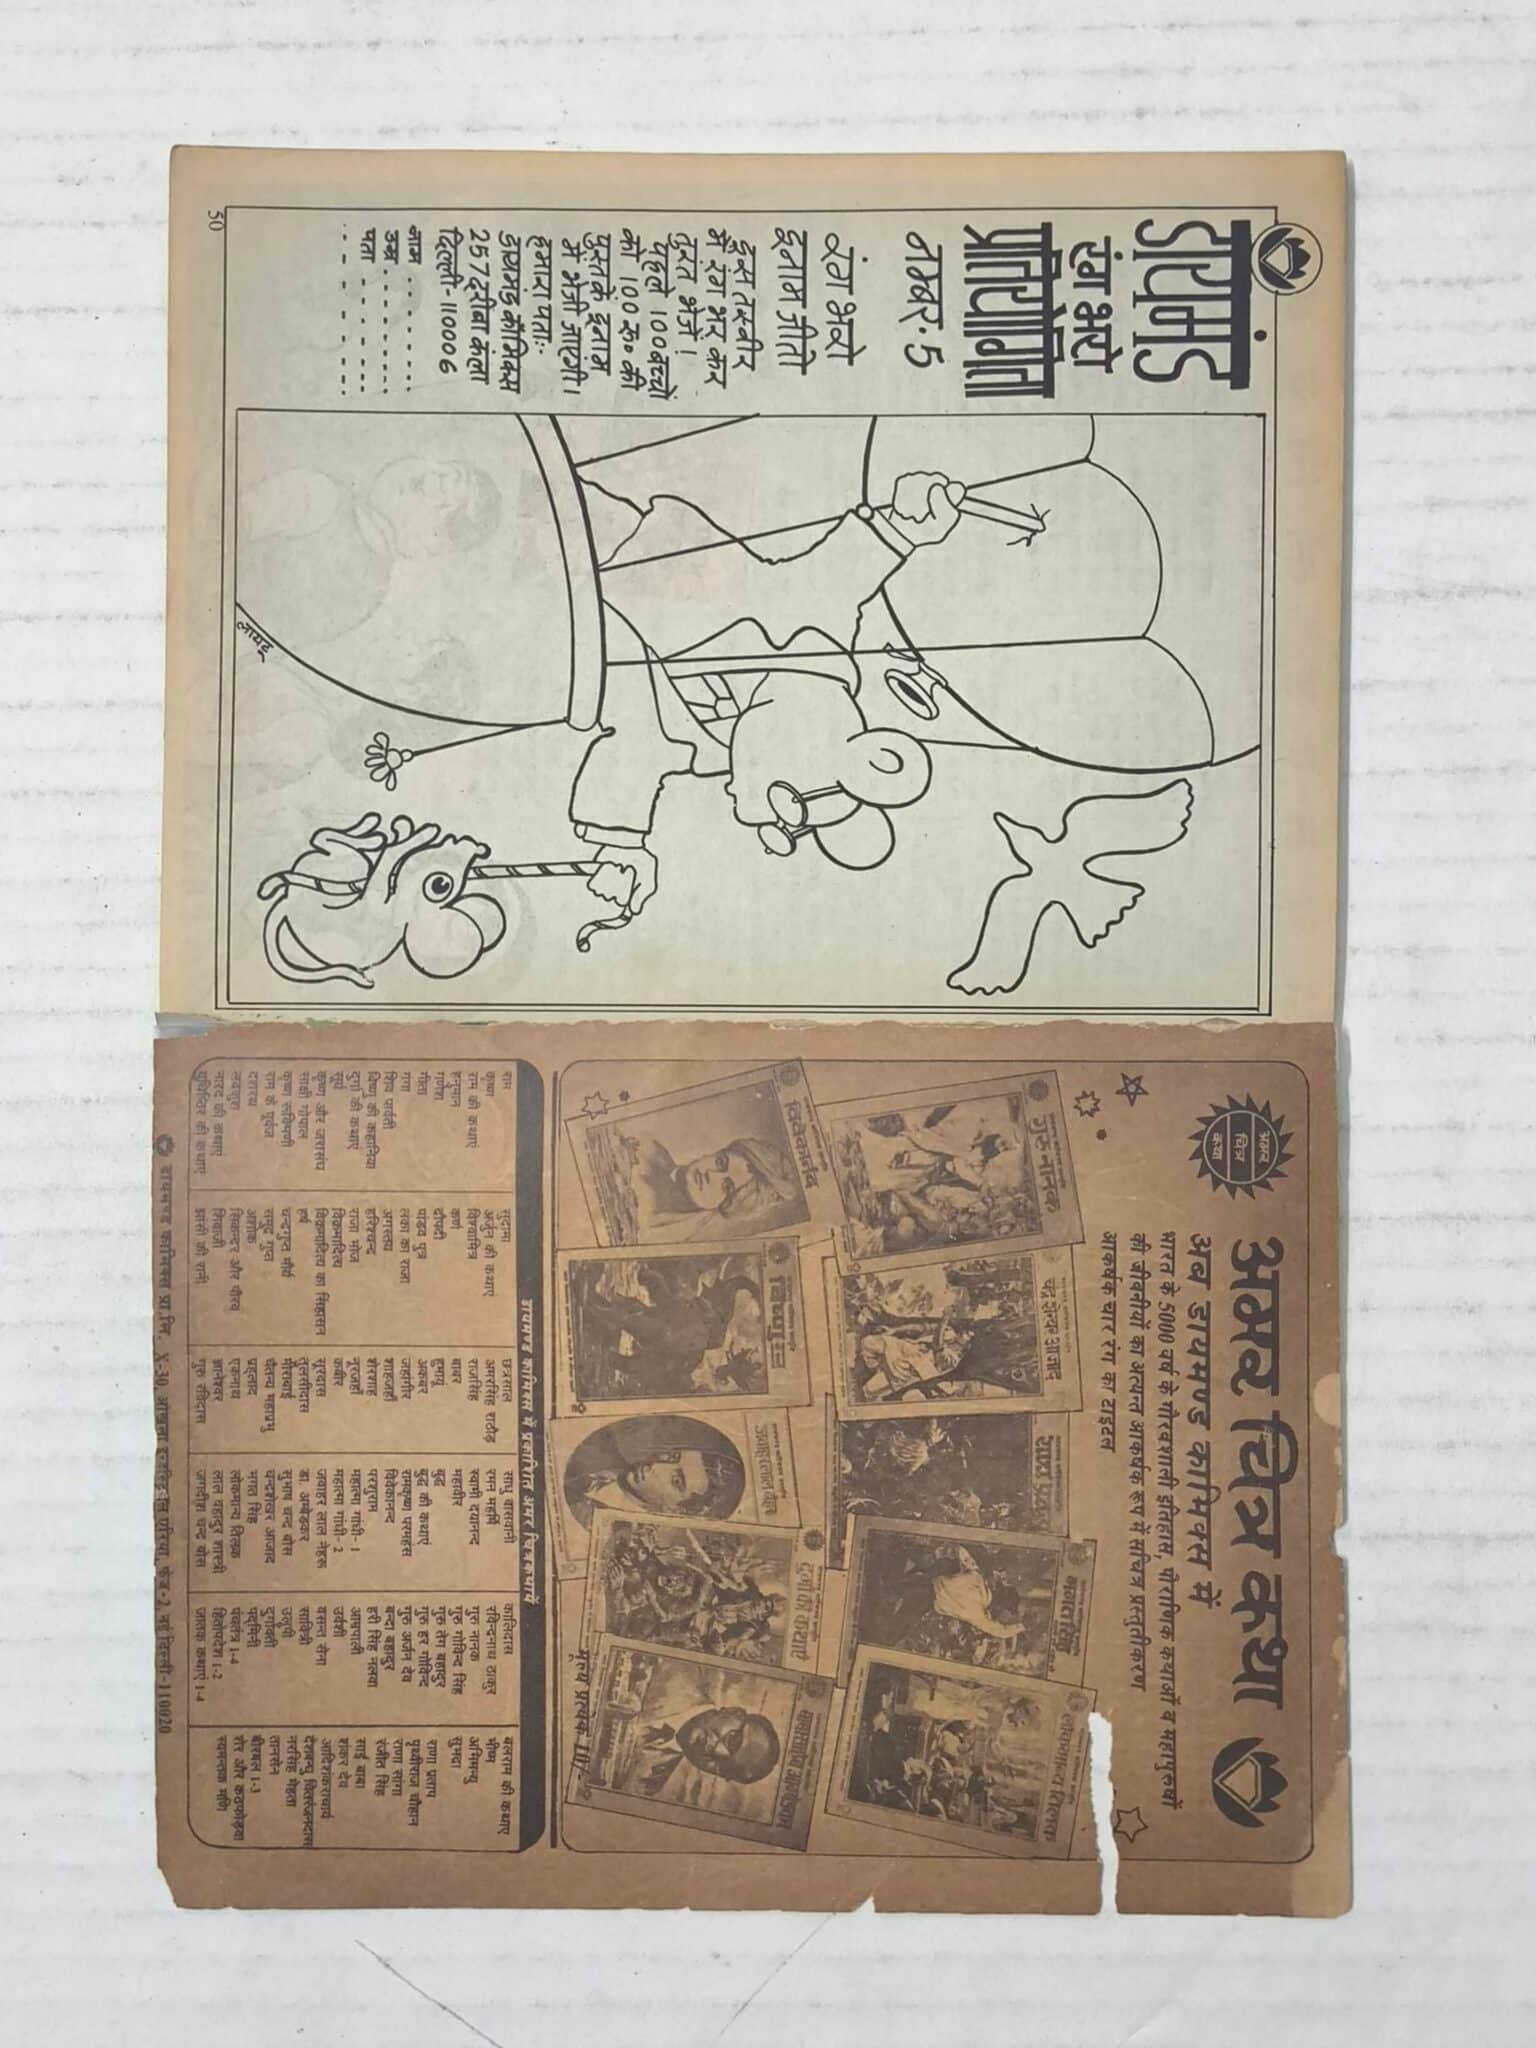 डायमंड
रंग भरो
प्रतियोगिता
नम्बर-5
रंग भरो
इनाम जीतो
इस तस्वीर
में रंग भर कर
तुरंत भेजें।
पहले 100 बच्चों
को 100 रू० की
पुस्तकें इनाम
में भेजी जाएंगी।
हमारा पता:-
डायमंड कॉमिक्स
257 दरीबा कंला
दिल्ली-110006
नाम
उम्र
पता
50
अमर
चित्र
कथा
अमर चित्र कथा
अब डायमण्ड कामिक्स में
भारत के 5000 वर्ष के गौरवशाली इतिहास, पौराणिक कथाओं व महापुरुषों
की जीवनीयों का अत्यन्त आकर्षक रूप में सचित्र प्रस्तुतीकरण
आकर्षक चार रंगा टाइटल
गुरु नानक
चंद्रशेखर आजाद
भगत सिंह
लोकमान्य तिलक
विवेकानंद
जवाहरलाल नेहरू
दुर्गा की कथाएँ
मूल्य प्रत्येक 10/-
डायमण्ड कामिक्स में प्रकाशित अमर चित्रकथायें
राम
कृष्ण
राम की कथाएं
हनुमान
गणेश
गीता
गंगा
शिव पार्वती
विष्णु की कहानियां
दुर्गा की कथाएं
सूर्य
कृष्ण और जरासंध
साक्षी गोपाल
कृष्ण रूक्मिणी
राम के पूर्वज
दशरथ
लवकुश
नारद की कथाएं
युधिष्ठिर की कथाएं
सुदामा
अर्जुन की कथाएं
विश्वामित्र
कर्ण
द्रौपदी
पांडव पुत्र
लंका का राजा
अगस्तय
हरिश्चन्द
राजा भोज
विक्रमादित्य
विक्रमादित्य का सिंहासन
हर्ष
चन्द्रगुप्त मौर्य
समुद्र गुप्त
अशोक
सिकन्दर और पौरव
शिवाजी
झांसी की रानी
छत्रसाल
अमरसिंह राठौड़
राजसिंह
बाबर
हुमायू
अकबर
जहांगीर
शाहजहाँ
शेरशाह
नूरजहाँ
कबीर
सूरदास
तुलसीदास
मीराबाई
चैतन्य महाप्रभु
प्रहलाद
एकनाथ
ज्ञानेश्वर
गुरु रविदास
साधु वासवानी
रमन महर्षि
स्वामी दयानन्द
महावीर
बुद्ध
बुद्ध की कथाएं
रामकृष्ण परमहंस
विवेकानन्द
परशुराम
महात्मा गांधी- 1
महात्मा गांधी- 2
जवाहर लाल नेहरू
डा. अम्बेडकर
सुभाष चन्द बोस
चन्द्रशेखर आजाद
भगत सिंह
लोकमान्य तिलक
लाल बहादुर शास्त्री
जगदीश चन्द बोस
कालिदास
रविन्दनाथ ठाकुर
गुरु नानक
गुरु गोविन्द सिंह
गुरु तेग बहादुर
गुरु हर गोविन्द
गुरु अर्जन देव
बन्दा बहादुर
हरी सिंह नलवा
आम्रपाली
उर्वशी
वसन्त सेना
सावित्री
उलूपी
दुर्गावती
पद्मिनी
पंचतंत्र 1-4
हितोपदेश 1-2
जातक कथाएं 1-4
बलराम की कथाएं
भीष्म
अभिमन्यु
सुभद्रा
राणा प्रताप
पृथ्वीराज चौहान
राणा सांगा
रंजीत सिंह
साई बाबा
शंकर देव
आदिशंकराचार्य
देशबन्धु चितरंजनदास
नरसिंह मेहता
तानसेन
बीरबल 1-3
शेर और कठफोड़वा
स्यमन्तक मणि
डायमण्ड कामिक्स प्रा.लि. X-30, ओखला इन्डस्ट्रियल एरिया, फेज-2, नई दिल्ली-110020